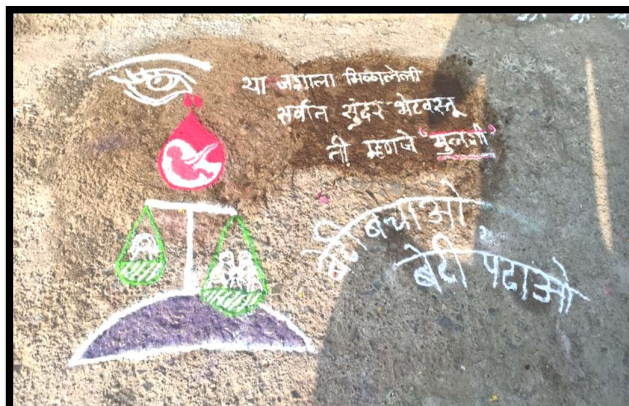 या जगाला मिळालेली
सर्वात सुंदर भेटवस्तू
ती म्हणजे "मुलगी"
बेटी बचाओ
बेटी पढाओ